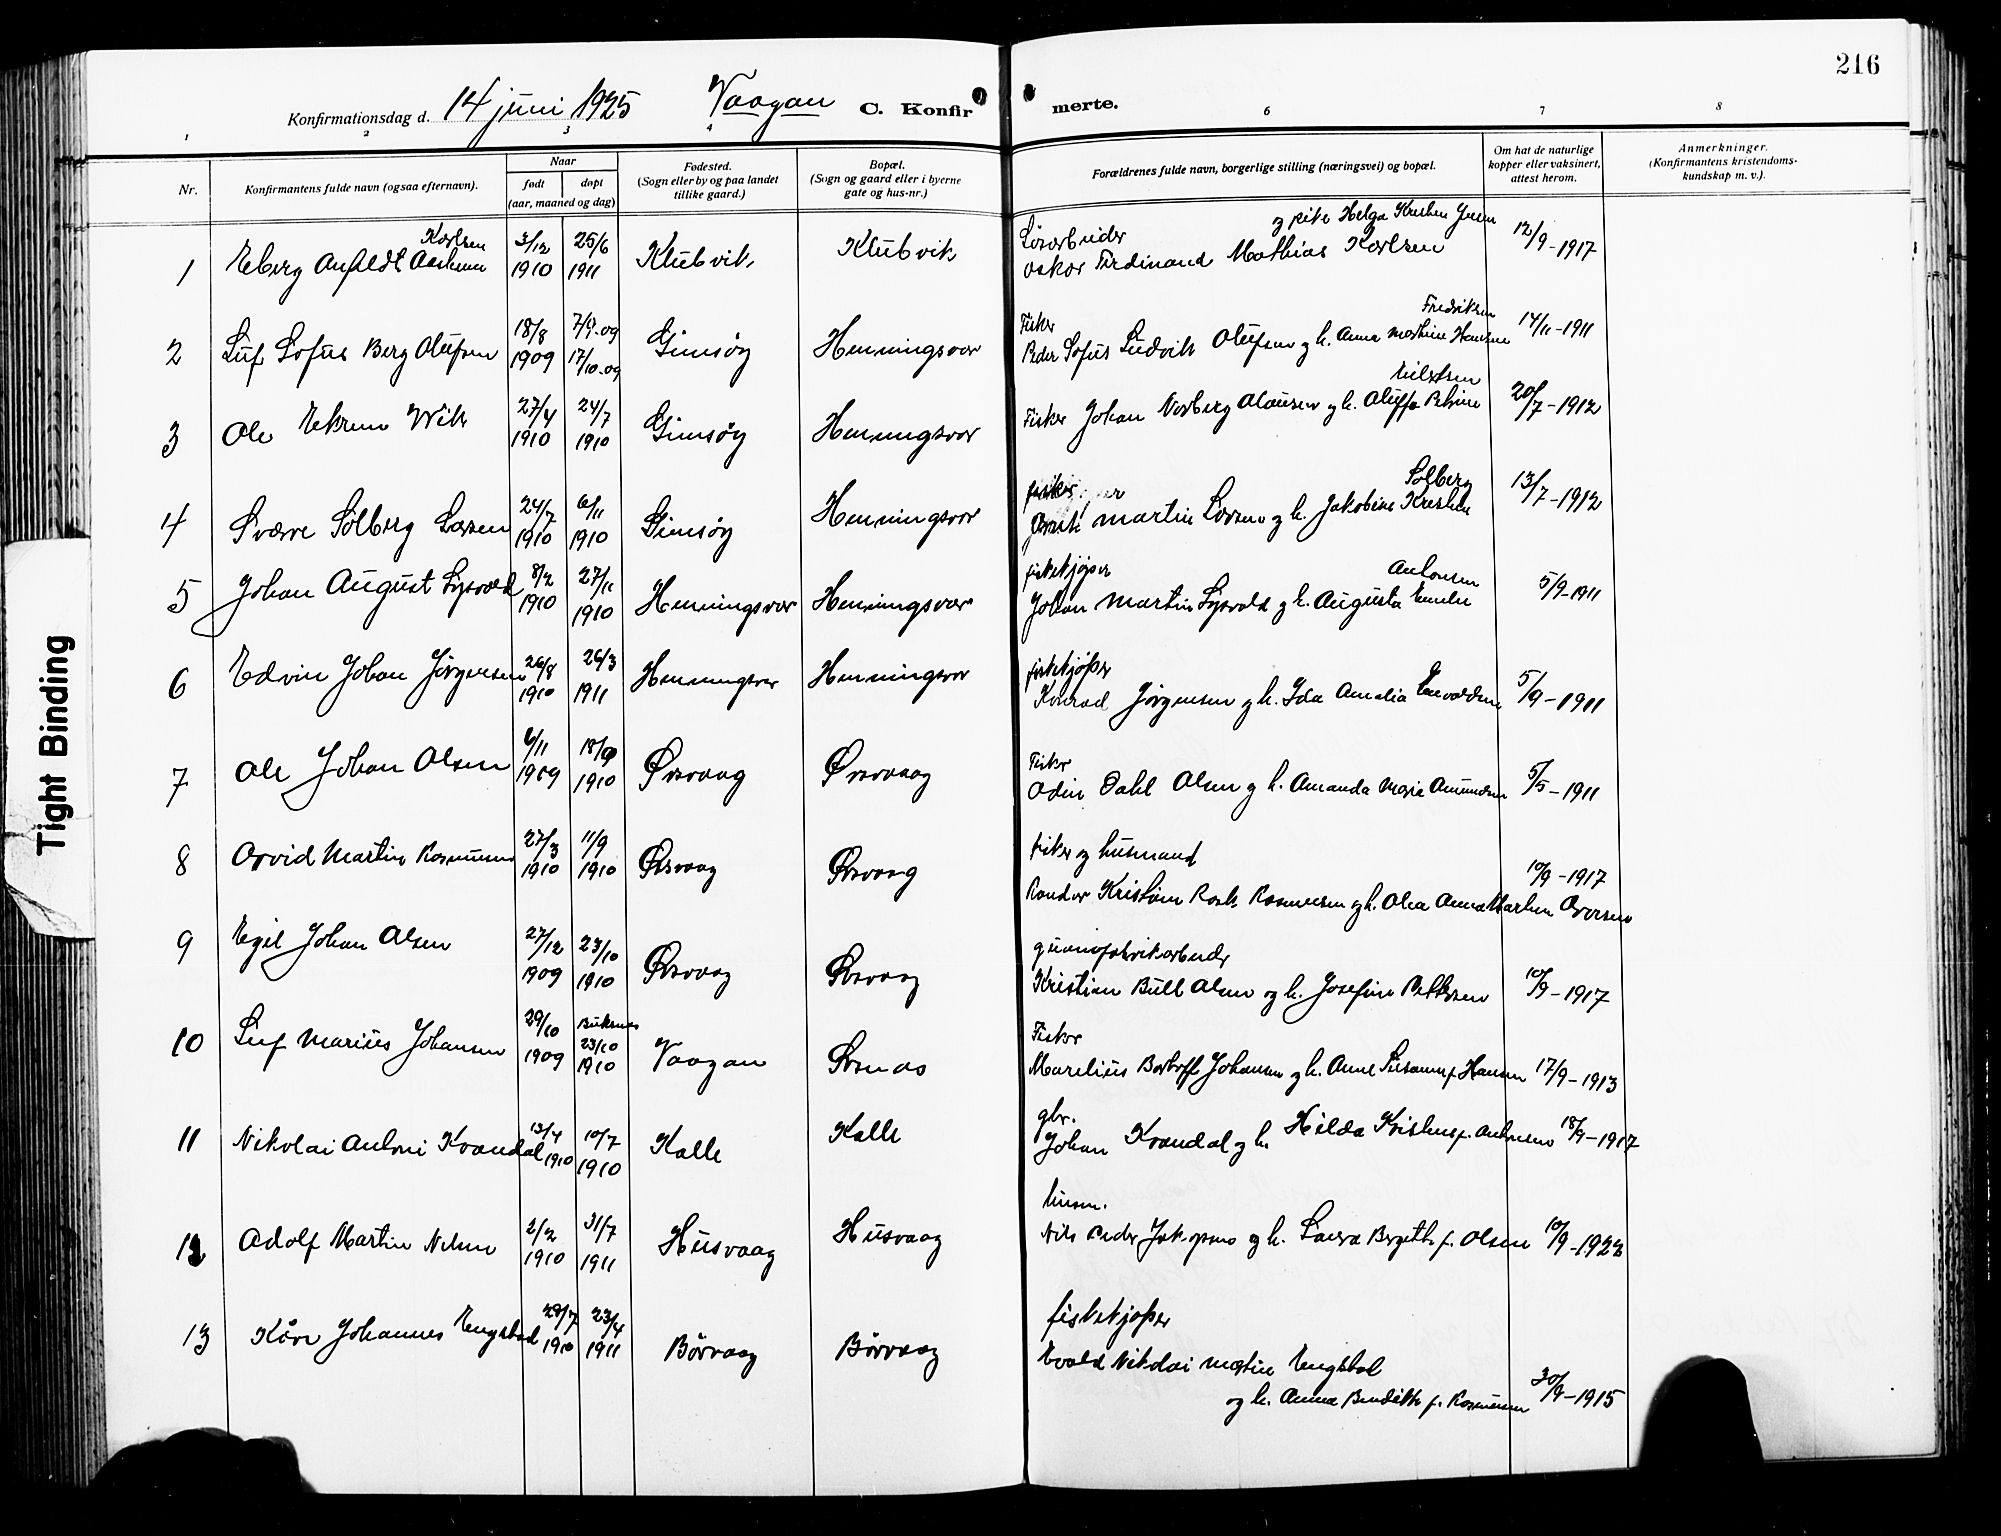 216
Konfirmationsdag d. 14 juni 1925 Vaagan C. Konfirmerte.
1 2 3 4 6 7 8
Nr.
Konfirmantens fulde navn (ogsaa efternavn).
Naar
født døpt
(aar, maaned og dag)
Fødested.
(Sogn eller by og paa landet
tillike gaard.)
Bopæl.
(Sogn og gaard eller i byerne
gate og hus-nr.)
Forældrenes fulde navn, borgerlige stilling (næringsvei) og bopæl.
Om hat de naturlige
kopper eller vaksinert,
attest herom.
Anmerkninger.
(Konfirmantens kristendoms-
kundskap m. v.).
Karlsen
1 Eberg Anfeldt 3/12 1910 25/6 1911 Klubvik Klubvik
og pike Helga Kristine Jensen
Løsarbeider
Oskar Ferdinand Mathias Karlsen 12/9-1917
2 Leif Sofus Berg Olufsen 18/8 1909 7/9.09 17/10.09 Gimsøy Henningsvær
Fredriksen
Fisker
Peder Sofus Ludvik Olufsen g h. Anna Mathine Hansine 14/11-1911
3 Ole Ekrem Wik 27/4 1910 24/7 1910 Gimsøy Henningsvær
Fisker Johan Norberg Olausen g h. Oluffa Petrine 20/7-1912
4 Sverre Solberg Larsen 24/7 1910 6/11 1910 Gimsøy Henningsvær
Solberg
fisker
Martin Larsen og h. Jakobine Kristine 13/7-1912
5 Johan August Lysvold 8/2 1910 27/11 1910 Henningsvær Henningsvær
fiskekjøper Antonsen
Johan Martin Lysvold g h. Augusta Emelie 5/9-1911
6 Edvin Johan Jørgensen 26/8 1910 26/3 1911 Henningsvær Henningsvær
fiskekjøper
Konrad Jørgensen g h. Ida Amalia Enevoldsen 5/9-1911
7 Ole Johan Olsen 6/11 1909 18/9 1910 Ørsvaag Ørsvaag
Fisker
Odin Dahl Olsen g h. Amanda Marie Amundsen 5/5-1911
8 Arvid Martin Rasmussen 27/3 1910 11/9 1910 Ørsvaag Ørsvaag
fisker og husmand
Kristian Rask Rasmussen g h. Olea Anna Marthine 10/9-1917
9 Egil Johan Olsen 27/12 1909 23/10 1910 Ørsvaag Ørsvaag
guanofabrikarbeider
Kristian Bull Olsen og h. Josefine Pettersen 10/9-1917
10 Leif Marius Johansen 29/10 1909 Buksnes 23/10 1910 Vaagan Ørsnes
Fisker
Marelius Johansen g h. Anne Susanne f. Hansen 17/9-1913
11 Nikolai Antoni Kvandal 13/4 1910 10/7 1910 Kalle Kalle
gbr.
Johan Kvandal g h. Hilda Kristine f. Antonsen 18/9-1917
12 Adolf Martin Nilsen 2/2 1910 31/7 1911 Husvaag Husvaag
husm.
Nils Peder Jakopsen og h. Laura Bergithe f. Olsen 10/9-1922
13 Kåre Johannes Engstad 29/7 1910 23/4 1911 Børvaag Børvaag
fiskekjøper
Evald Nikolai Martin Engstad
og h. Anna Bendikte f. Rasmussen 30/9-1915
Tight Binding